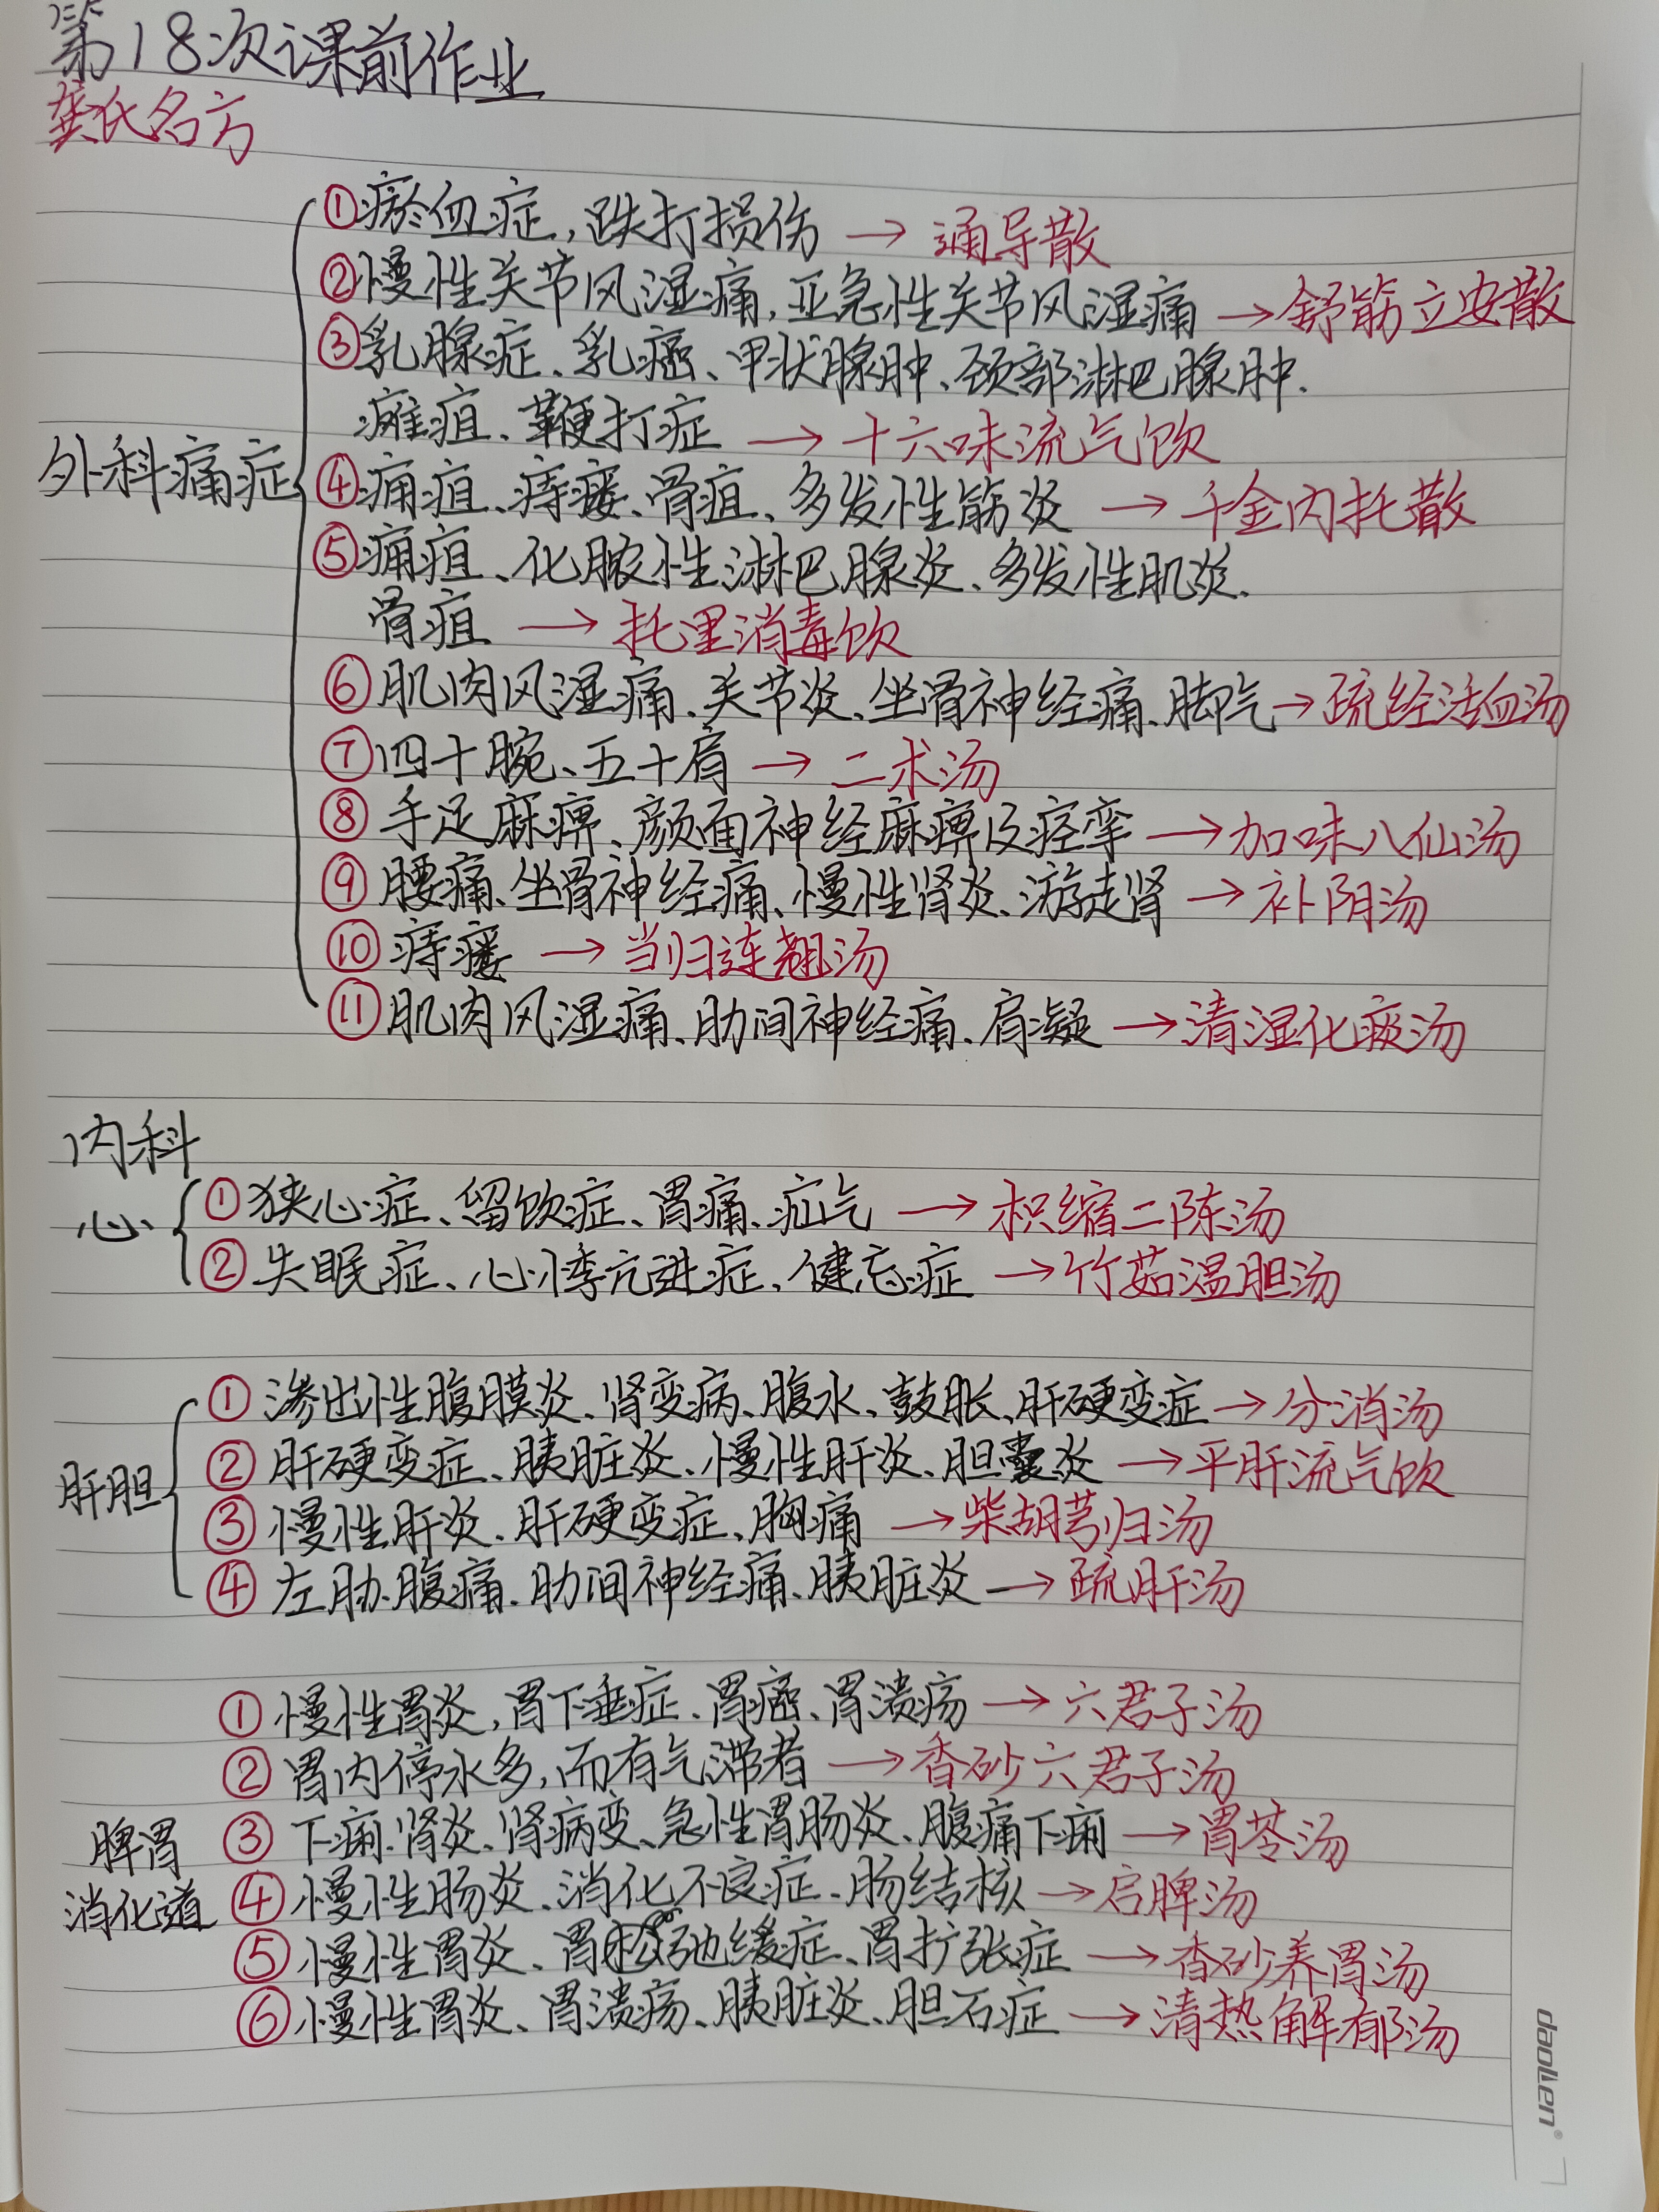 第18次课前作业
龚氏名方
外科痛症
①瘀血症,跌打损伤 → 通导散
②慢性关节风湿痛,亚急性关节风湿痛 → 舒筋立安散
③乳腺症、乳癌、甲状腺肿、颈部淋巴腺肿.
瘫疽、鞭打症 → 十六味流气饮
④痈疽、痔瘘、骨疽、多发性筋炎 → 千金内托散
⑤痈疽、化脓性淋巴腺炎、多发性肌炎.
骨疽 → 托里消毒饮
⑥肌肉风湿痛、关节炎、坐骨神经痛、脚气→疏经活血汤
⑦四十腕、五十肩 → 二术汤
⑧手足麻痹、颜面神经麻痹及痉挛 → 加味八仙汤
⑨腰痛、坐骨神经痛、慢性肾炎、游走肾 → 补阴汤
⑩痔瘘 → 当归连翘汤
⑪肌肉风湿痛、肋间神经痛、肩凝 → 清湿化痰汤
内科
心
①狭心症、留饮症、胃痛、症气 → 枳缩二陈汤
②失眠症、心悸亢进症、健忘症 → 竹茹温胆汤
肝胆
①渗出性腹膜炎、肾变病、腹水、鼓胀、肝硬变症 → 分消汤
②肝硬变症、胰脏炎、慢性肝炎、胆囊炎 → 平肝流气饮
③慢性肝炎、肝硬变症、胸痛 → 柴胡芎归汤
④左胁腹痛、肋间神经痛、胰脏炎 → 疏肝汤
脾胃
消化道
①慢性胃炎,胃下垂症、胃癌、胃溃疡 → 六君子汤
②胃内停水多,而有气滞者 → 香砂六君子汤
③下痢、肾炎、肾病变、急性胃肠炎、腹痛下痢 → 胃苓汤
④慢性肠炎、消化不良症、肠结核 → 启脾汤
⑤慢性胃炎、胃弛缓症、胃扩张症 → 香砂养胃汤
⑥慢性胃炎、胃溃疡、胰脏炎、胆石症 → 清热解郁汤
daolen®